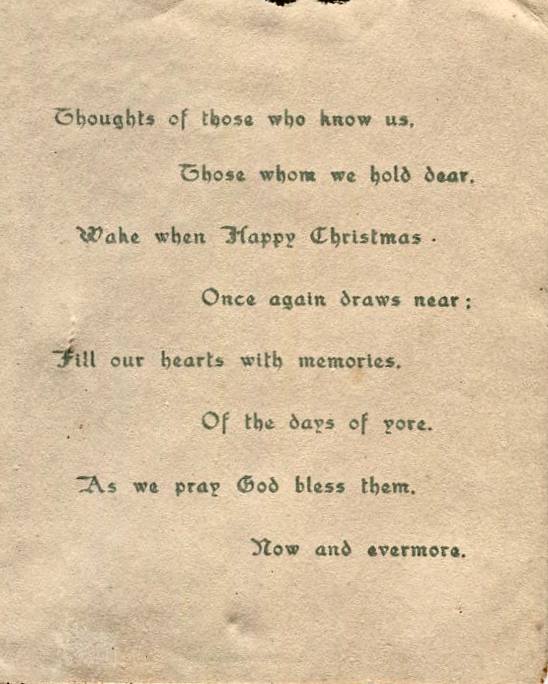 Thoughts of those who know us,
Those whom we hold dear,
Wake when Happy Christmas
Once again draws near;
Fill our hearts with memories,
Of the days of yore.
As we pray God bless them,
Now and evermore.